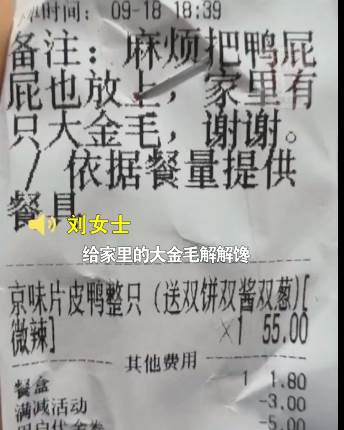 时间： 09-18 18:39
备注：麻烦把鸭屁
屁也放上，家里有
只大金毛，谢谢。
/ 依据餐量提供
餐具
刘女士
给家里的大金毛解解馋
京味片皮鸭整只（送双饼双酱双葱）[
微辣] ×1 55.00
其他费用
餐盒 1 1.80
满减活动 -3.00
-5.00